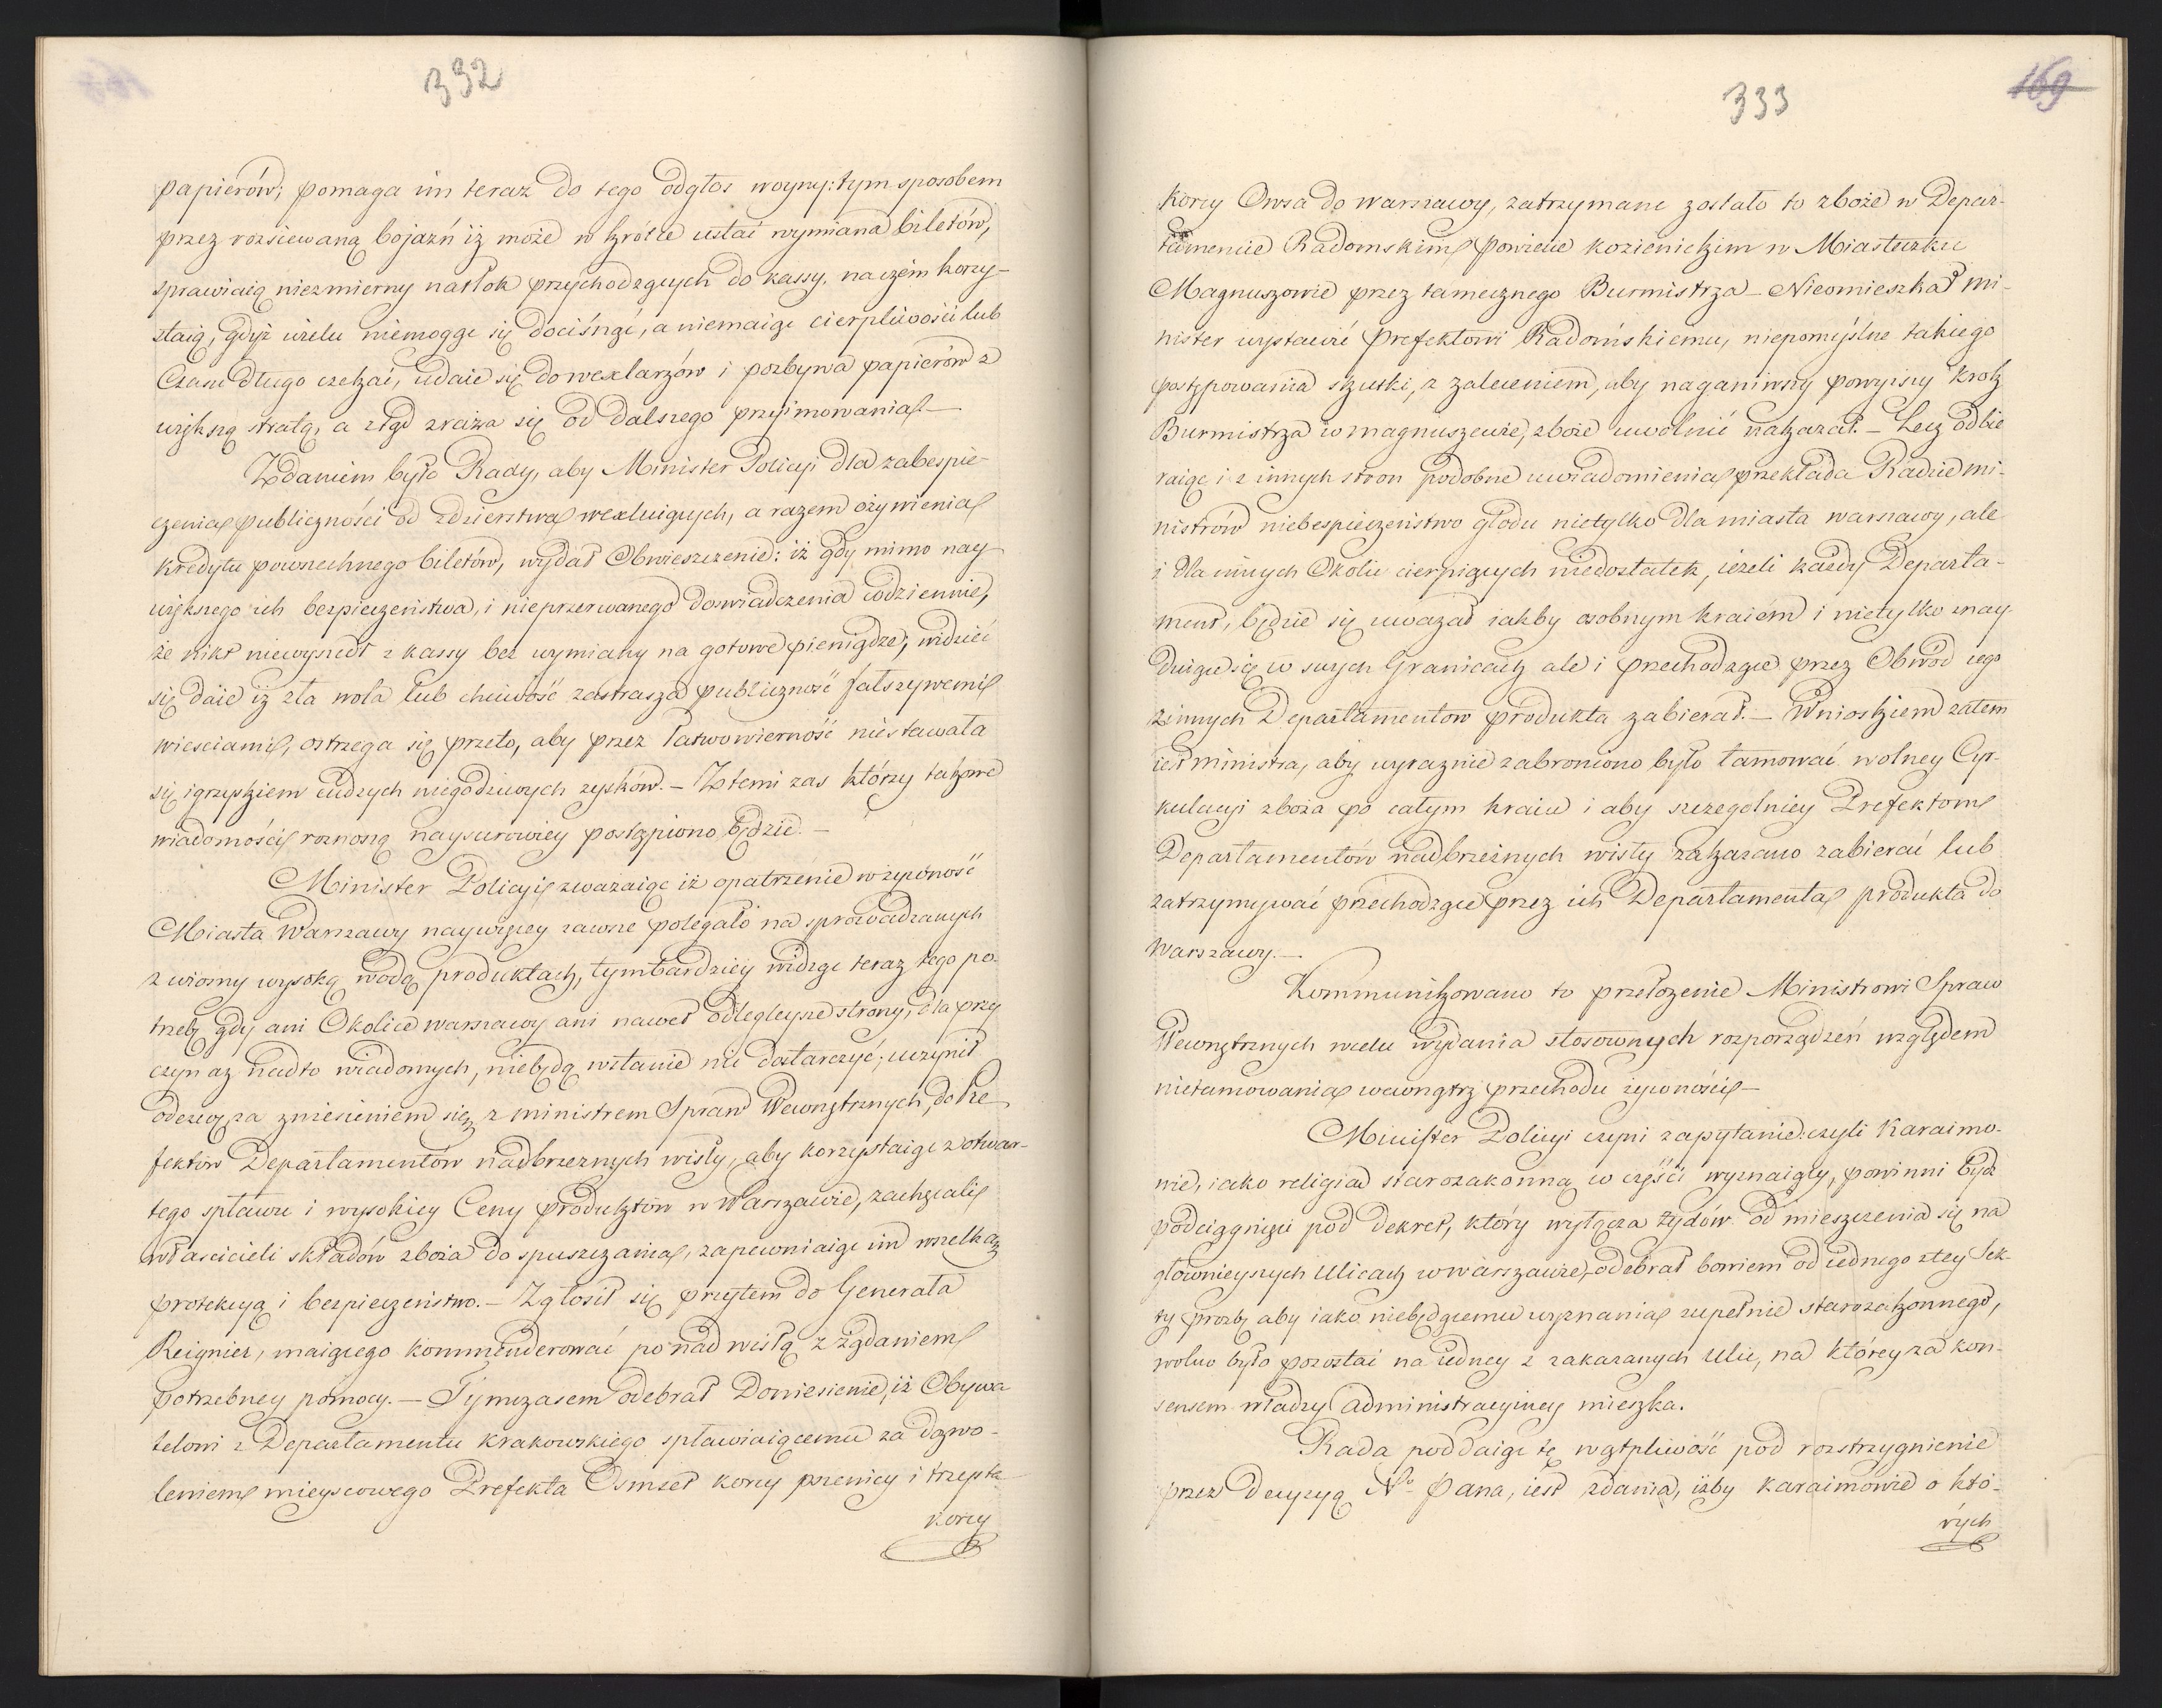 332
papierów; pomaga im teraz do tego odgłos woyny: tym sposobem
przez rozsiewaną bojaźń iż może w krótce ustać wymiana biletów,
sprawiaią niezmierny natłok przychodzących do kassy, na czém korzy-
staią, gdyż wielu niemogąc się docisnąć, a niemaiąc cierpliwości lub
Czasu długo czekać, udaie się do wexlarzów i pozbywa papierów z
większą stratą, a ztąd zraża się od dalszego przyimowania. —
Zdaniem było Rady, aby Minister Policyi dla zabespie-
czenia publiczności od zdzierstwa wexluiących, a razem ożywienia
kredytu powszechnego biletów, wydał Obwieszczenie: iż gdy mimo nay-
większego ich bezpieczeństwa, i nieprzerwanego doswiadczenia codziennie,
że nikt niewyszedł z kassy bez wymiany na gotowe pieniądze, widzieć
się daie iż zła wola lub chciwość zastrasza publiczność fałszywemi
wiesciami, ostrzega się przeto, aby przez łatwowierność niestawała
się igrzyskiem cudzych niegodziwych zysków. — Z temi zas którzy takowe
wiadomości roznoszą naysurowiey postąpiono będzie. —
Minister Policyi zważaiąc iż opatrzenie w żywność
Miasta Warszawy naywięcey zawsze polegało na sprowadzanych
z wiosny wysoką wodą produktach, tymbardziey widząc teraz tego po-
trzebę gdy ani Okolice warszawy ani nawet odległeysze strony, dla przy
czyn aż nadto wiadomych, niebędą wstanie nic dostarczyć; uczynił
odezwę za zniesieniem się z ministrem Spraw Wewnętrznych, do Pre-
fektów Departamentów nadbrzeznych wisły, aby korzystaiąc z otwar-
tego spławu i wysokiey Ceny produktów w Warszawie, zachęcali
właścicieli składów zboża do spuszczania, zapewniaiąc im wszelką
protekcyą i bezpieczeństwo. — Zgłosił się przytem do Generała
Reignier, maiącego kommenderować ponad wisłą z żądaniem
potrzebney pomocy. — Tymczasem odebrał Doniesienie, iż Obywa
telowi z Departamentu krakowskiego spławiaiącemu za dozwo-
leniem mieyscowego Prefekta Osmset korcy pszenicy i trzysta
korcy
333
169
korcy Owsa do warszawy, zatrzymane zostało to zboże w Depar-
tamencie Radomskim Powiecie kozienickim w Miasteczku
Magnuszowie przez tamecznego Burmistrza — Nieomieszkał mi-
nister wystawić Prefektowi Radomskiemu, niepomyślne takiego
postępowania skutki, z zaleceniem, aby naganiwszy powyższy krok
Burmistrza w magnuszewie, zboże uwolnić nakazał. — Lecz odbie
raiąc i z innych stron podobne uwiadomienia przekłada Radzie mi-
nistrów niebespieczeństwo głodu nietylko dla miasta warszawy, ale
i dla innych Okolic cierpiących niedostatek, ieżeli każdy Departa-
ment, będzie się uważał iakby osobnym kraiem i nietylko znay
duiące się w swych Granicach ale i przechodzące przez Obwod iego
z innych Departamentow produkta zabierał. — Wnioskiem zatem
iest ministra, aby wyraznie zabroniono było tamować wolney Cyr-
kulacyi zboża po całym kraiu i aby szczegolniey Prefektom
Departamentów nadbrzeżnych wisły zakazano zabierać lub
zatrzymywać przechodzące przez ich Departamenta produkta do
Warszawy. —
Kommunikowano to przełożenie Ministrowi Spraw
Wewnętrznych wcelu wydania stosownych rozporządzeń względem
nietamowania wewnątrz przechodu żywności —
Minister Policyi czyni zapytanie: czyli Karaimo-
wie, iako religią starozakonną w części wyznaiący, powinni bydź
podciągnięci pod Dekret, który wyłącza żydów od mieszczenia się na
głownieyszych Ulicach w warszawie, odebrał bowiem od iednego z tey Sek-
ty prosbę aby iako niebędącemu wyznania zupełnie starozakonnego,
wolno było pozostać na iedney z zakazanych Ulic, na którey za kon-
sensem władzy Administracyiney mieszka.
Rada poddaiąc tę wątpliwość pod rozstrzygnienie
przez Decyzyą N° Pana, iest zdania, iżby karaimowie o któ-
rych